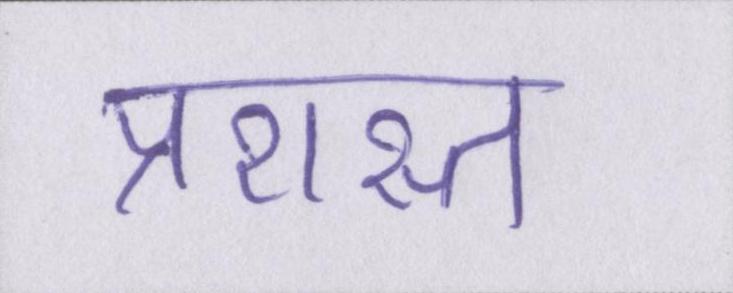 प्रशस्त